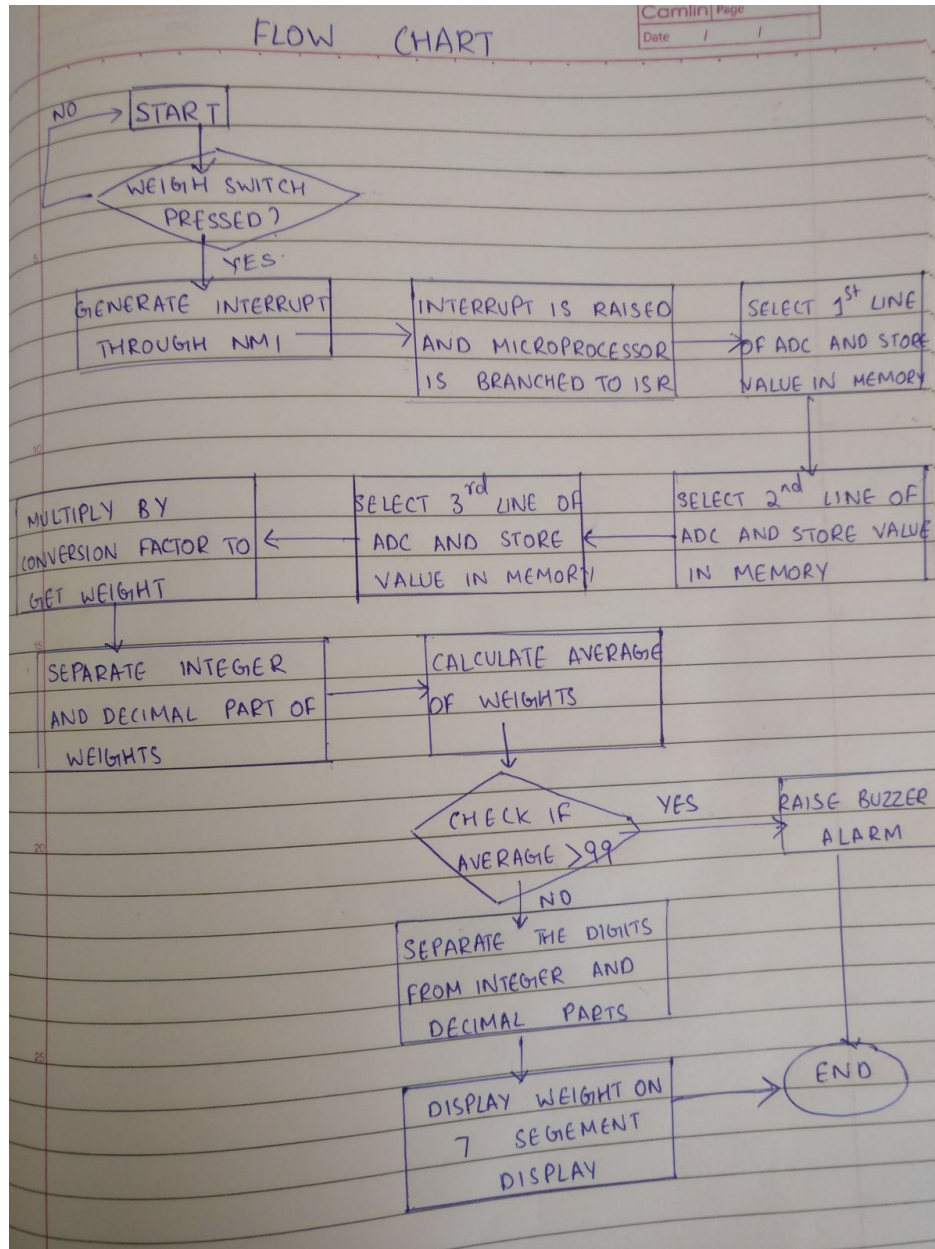 Camlin Page
Date / /
FLOW CHART
NO
START
WEIGH SWITCH
PRESSED?
YES.
GENERATE INTERRUPT
THROUGH NMI
INTERRUPT IS RAISED
AND MICROPROCESSOR
IS BRANCHED TO ISR
SELECT 1st LINE
OF ADC AND STORE
VALUE IN MEMORY
5
10
SELECT 2nd LINE OF
ADC AND STORE VALUE
IN MEMORY
SELECT 3rd LINE OF
ADC AND STORE
VALUE IN MEMORY
MULTIPLY BY
CONVERSION FACTOR TO
GET WEIGHT
15
SEPARATE INTEGER
AND DECIMAL PART OF
WEIGHTS
CALCULATE AVERAGE
OF WEIGHTS
CHECK IF
AVERAGE >99
YES
RAISE BUZZER
ALARM
20
NO
SEPARATE THE DIGITS
FROM INTEGER AND
DECIMAL PARTS
25
DISPLAY WEIGHT ON
7 SEGEMENT
DISPLAY
END